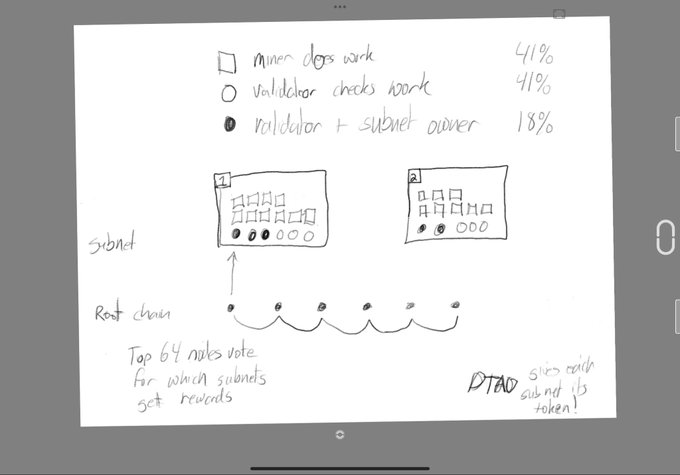 miner does work 41%
validator checks work 41%
validator + subnet owner 18%
1
2
subnet
Root chain
Top 64 nodes vote
for which subnets
get rewards
DTAO gives each
subnet its
token!